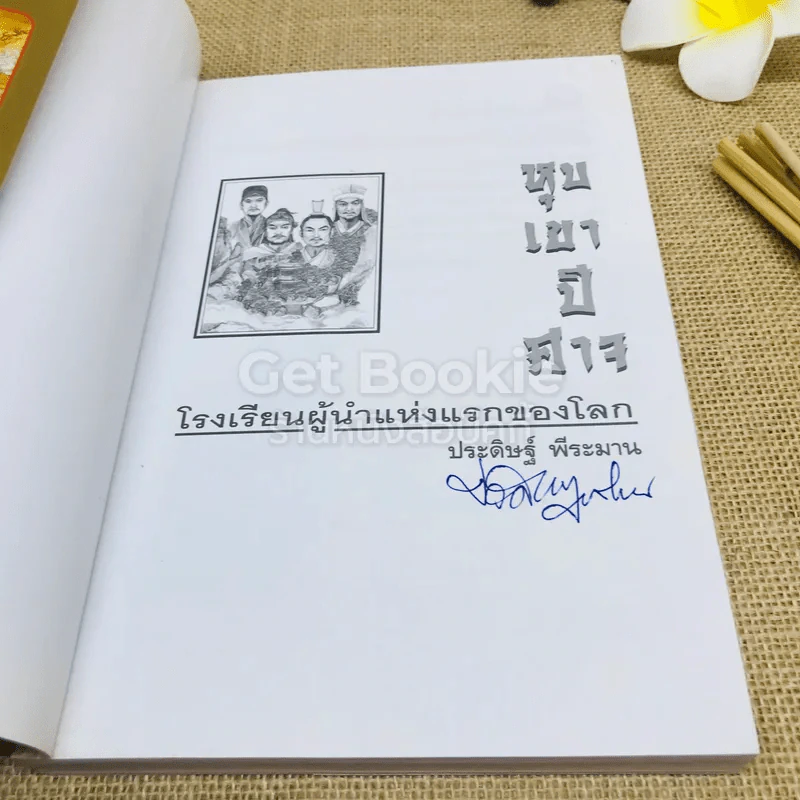 หุบ
เขา
ปี
ศาจ
Get Bookie
ร้านหนังสือบุ๊คกี้
โรงเรียนผู้นำแห่งแรกของโลก
ประดิษฐ์ พีระมาน